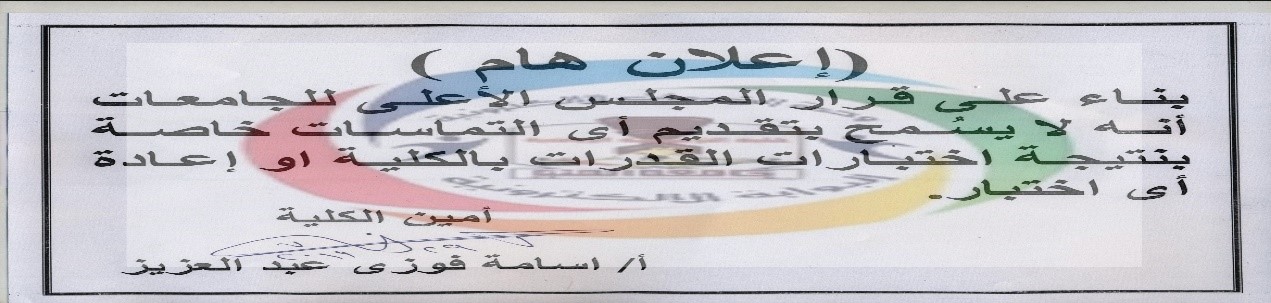 (إعلان هام )
بناء على قرار المجلس الأعلى للجامعات
أنه لا يسُمح بتقديم أى التماسات خاصة
بنتيجة اختبارات القدرات بالكلية او إعادة
أى اختبار.
أمين الكلية
أ/ اسامة فوزى عبد العزيز
البوابة الالكترونية